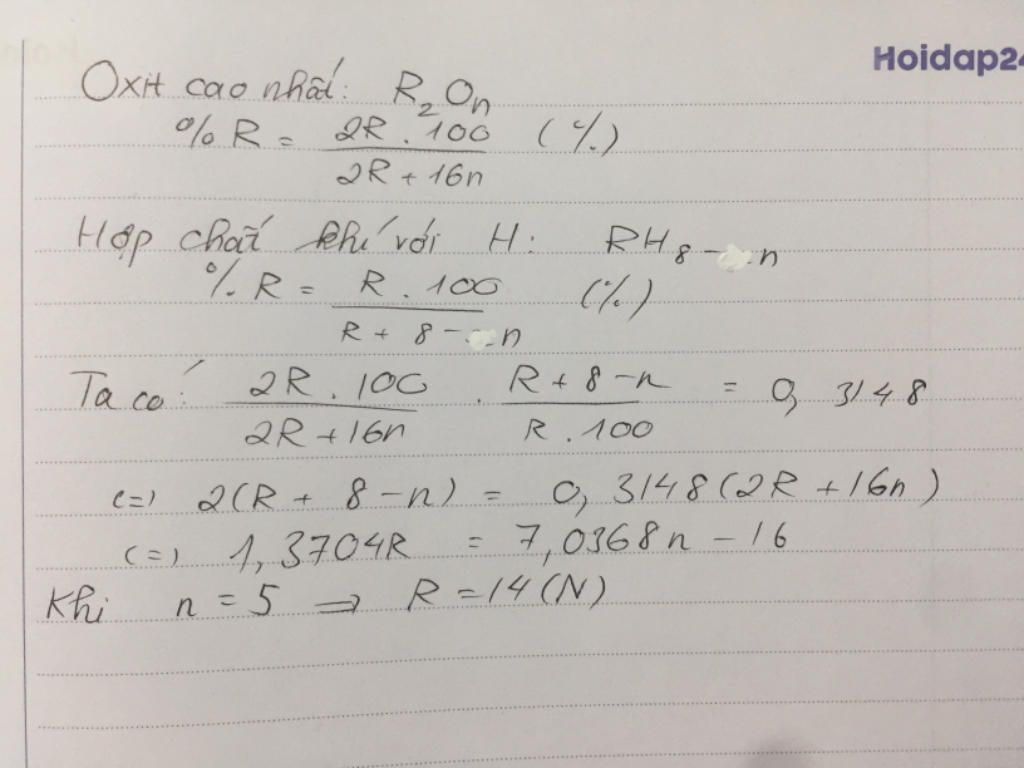 Hoidap24
Oxit cao nhất: R₂Oₙ
% R = 2R . 100 / 2R + 16n (%)
Hợp chất khí với H: RH₈₋ₙ
% R = R . 100 / R + 8 - n (%)
Ta có: 2R . 100 / 2R + 16n . R + 8 - n / R . 100 = 0,3148
(=) 2(R + 8 - n) = 0,3148(2R + 16n)
(=) 1,3704R = 7,0368n - 16
Khi n = 5 ⇒ R = 14 (N)